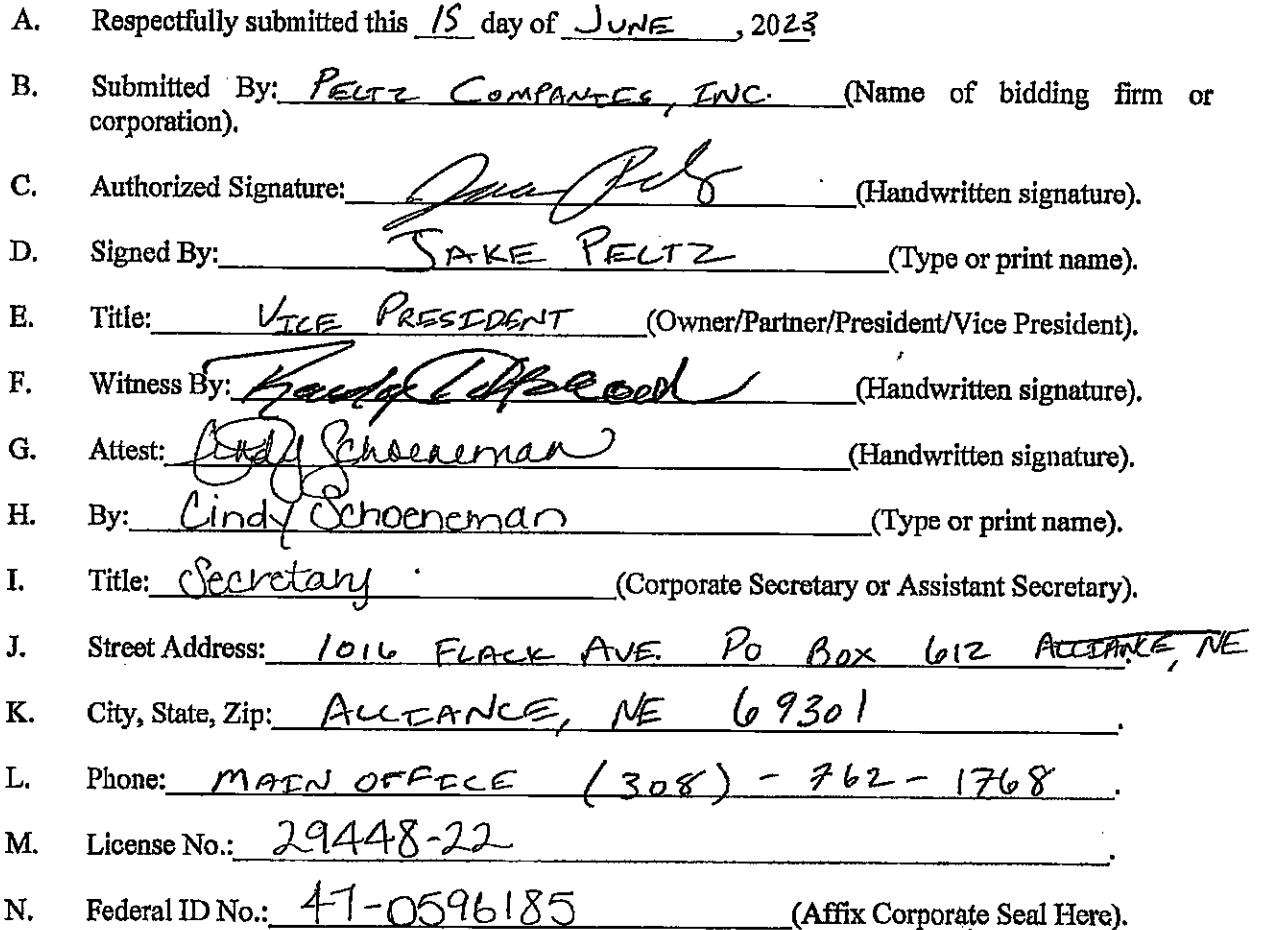 A. Respectfully submitted this 15 day of JUNE, 2023
B. Submitted By: PELTZ COMPANIES, INC. (Name of bidding firm or
corporation).
C. Authorized Signature: (Handwritten signature).
D. Signed By: JAKE PELTZ (Type or print name).
E. Title: VICE PRESIDENT (Owner/Partner/President/Vice President).
F. Witness By: (Handwritten signature).
G. Attest: Cindy Schoeneman (Handwritten signature).
H. By: Cindy Schoeneman (Type or print name).
I. Title: Secretary (Corporate Secretary or Assistant Secretary).
J. Street Address: 1016 FLACK AVE. PO BOX 612 ALLIANCE, NE
K. City, State, Zip: ALLIANCE, NE 69301.
L. Phone: MAIN OFFICE (308) - 762 - 1768.
M. License No.: 29448-22.
N. Federal ID No.: 47-0596185 (Affix Corporate Seal Here).